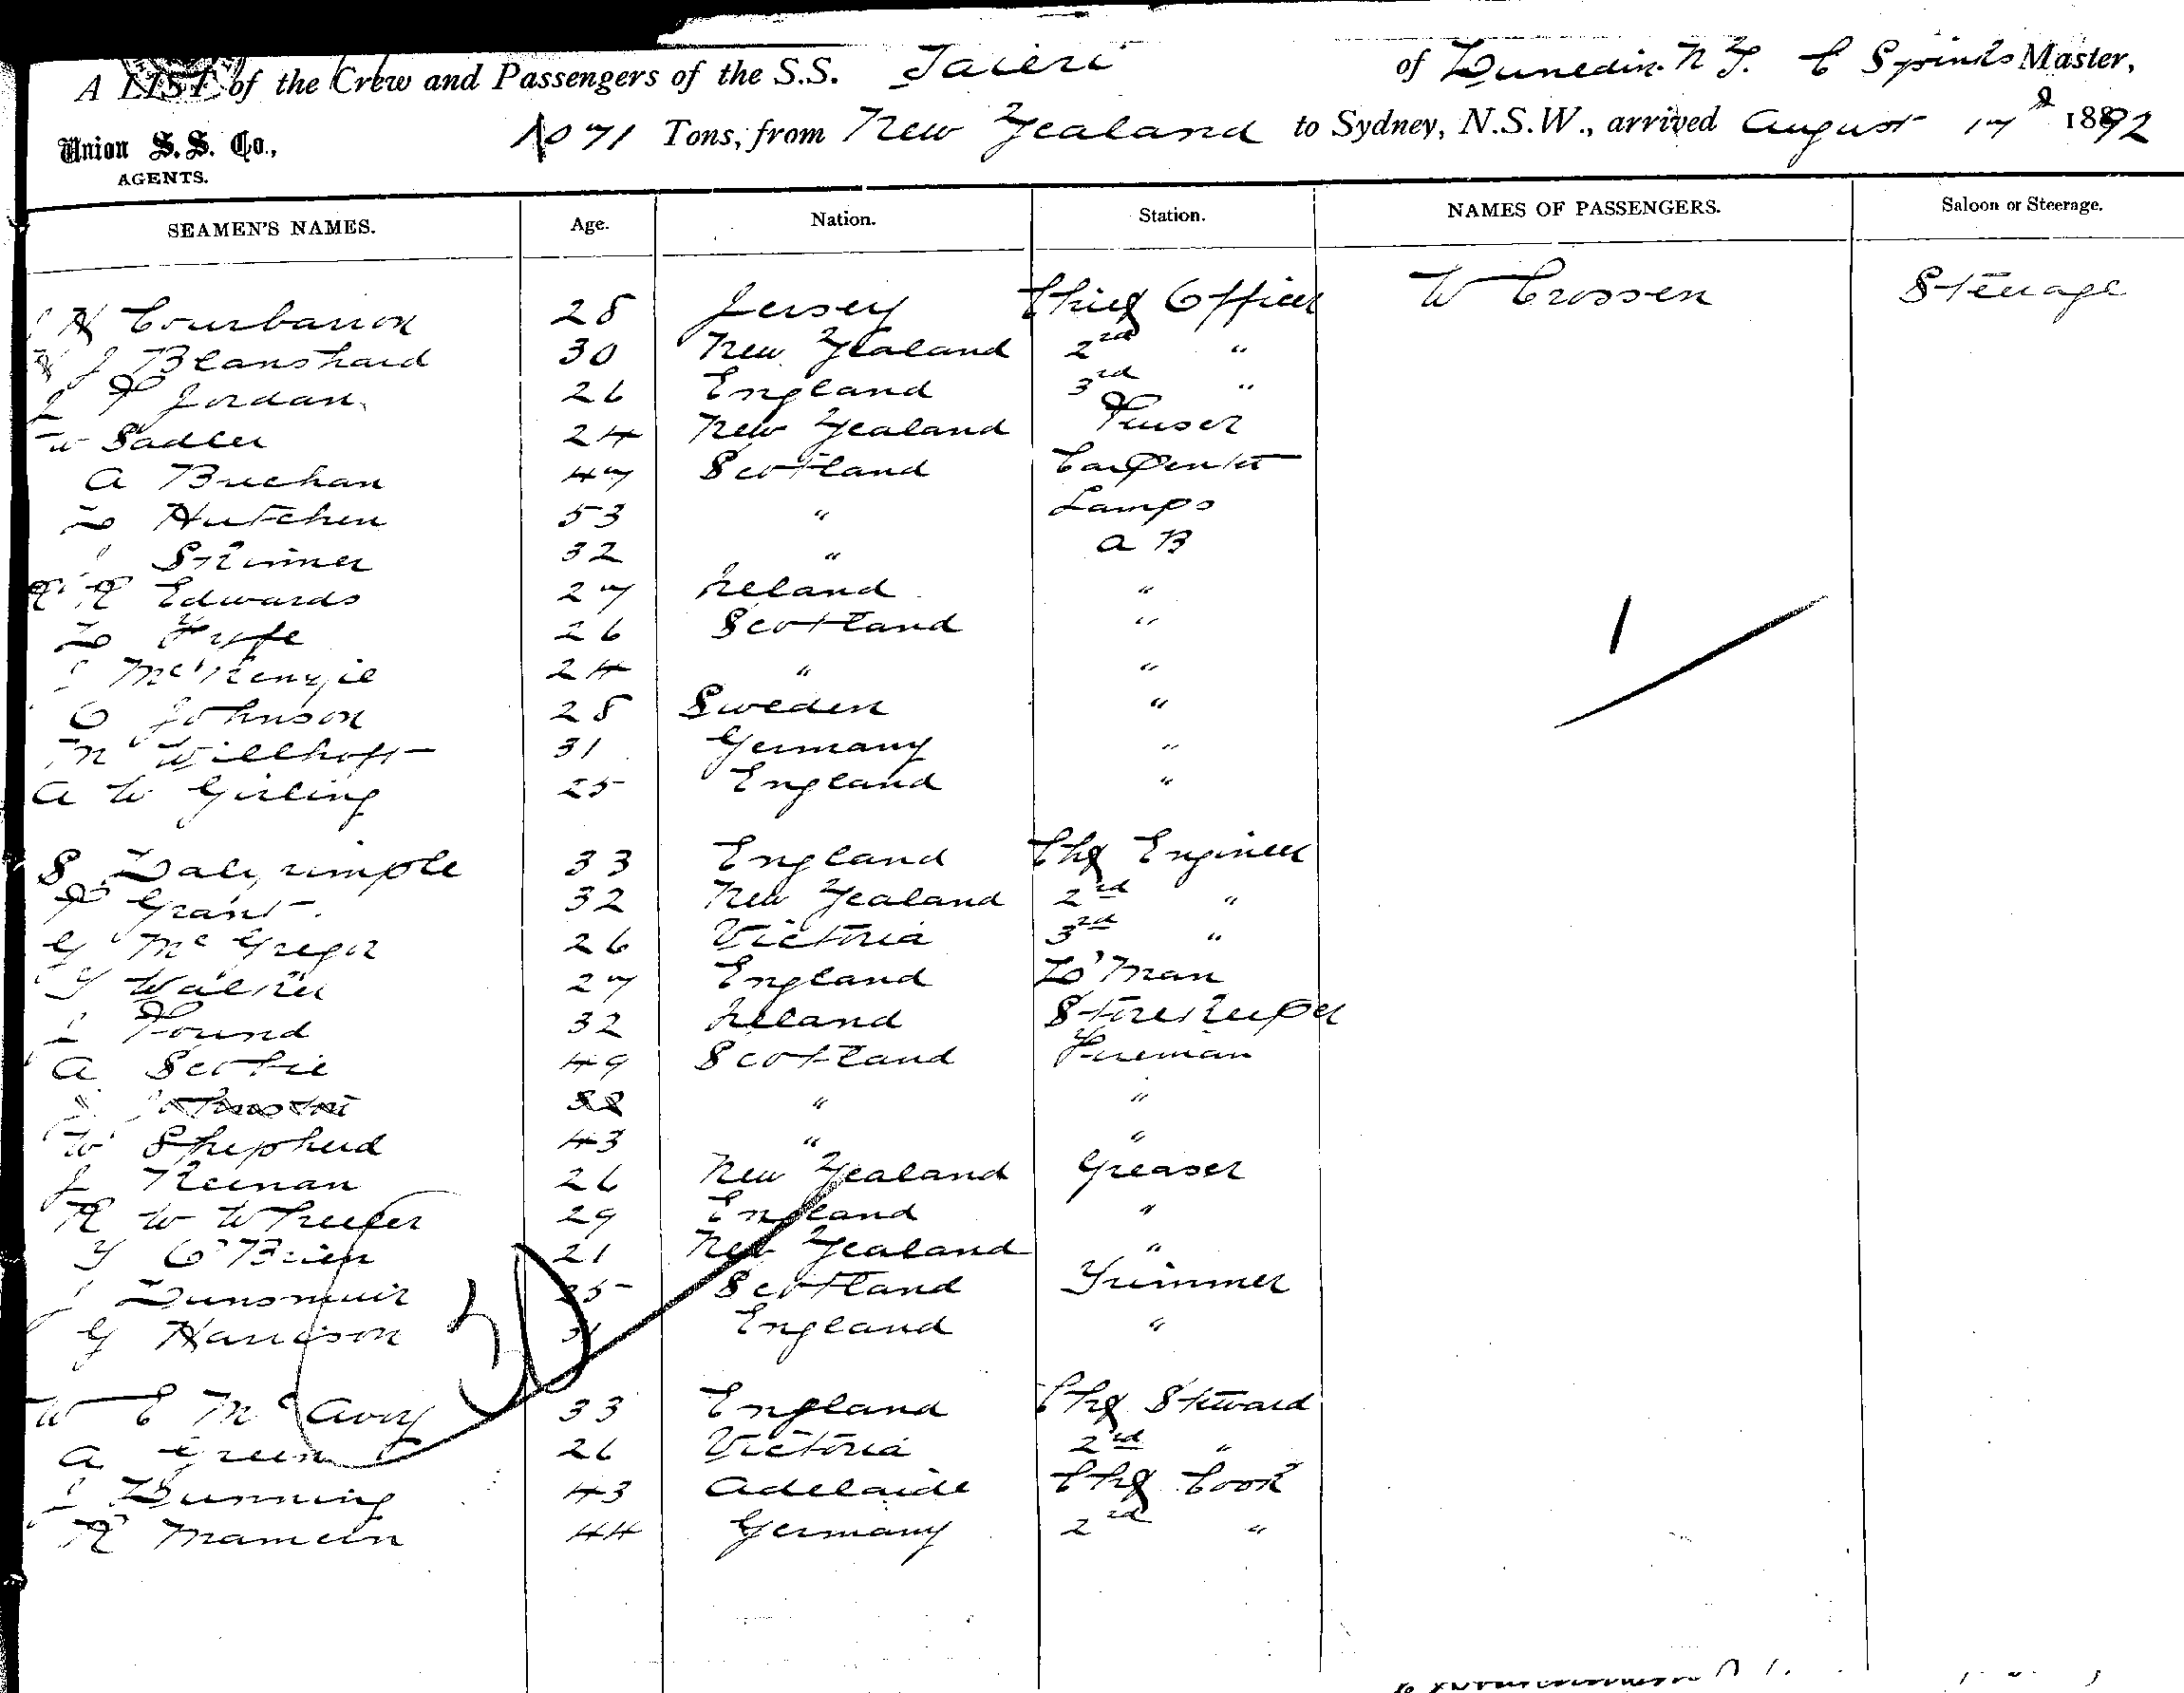 A LIST of the Crew and Passengers of the S.S. Taieri of Dunedin. N Z. C Spinks Master,
Union S.S. Co., AGENTS. 1071 Tons, from New Zealand to Sydney, N.S.W., arrived August 17th 1892
SEAMEN'S NAMES. Age. Nation. Station. NAMES OF PASSENGERS. Saloon or Steerage.
H Courbarron 28 Jersey Chief Officer W Crossen Steerage
J Blanshard 30 New Zealand 2nd "
P Jordan. 26 England 3rd "
W Sadler 24 New Zealand Purser
A Buchan 47 Scotland Carpenter
D Hutchen 53 " Lamps
J Skinner 32 " A B
R Edwards 27 Ireland "
D Fyfe 26 Scotland "
J McKenzie 24 " "
O Johnson 28 Sweden "
M Willhoft 31 Germany "
A W Girling 25 England "
1
S Dalrymple 33 England Chf Engineer
P Grant. 32 New Zealand 2nd "
G McGregor 26 Victoria 3rd "
T Walker 27 England D'Man
J Pound 32 Ireland Storekeeper
A Scobie 49 Scotland Fireman
" "
W Shepherd 43 " "
J Keenan 26 New Zealand Greaser
R W Wheeler 29 England "
T O'Brien 21 New Zealand "
J Dunsmuir 25 Scotland Trimmer
G Harrison 31 England "
30
W E McAvoy 33 England Chf Steward
A Green 26 Victoria 2nd "
J Dunning 43 Adelaide Chf Cook
R Mamein 44 Germany 2nd "